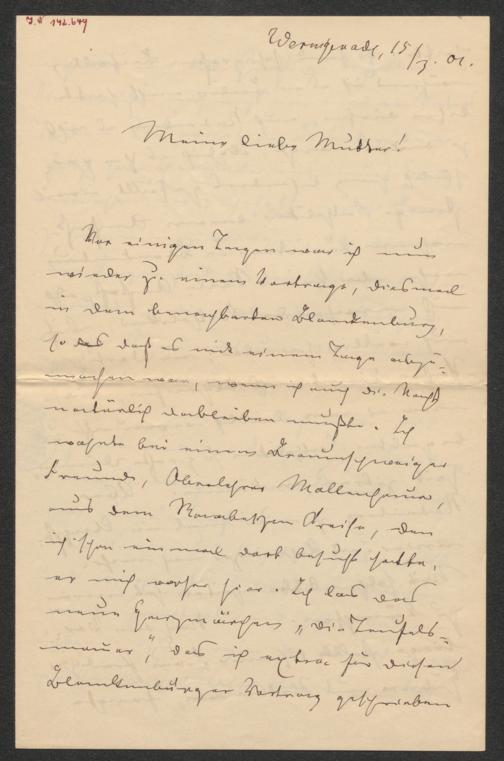 J.N 142.649
Wernigerode, 15/3. 01.
Meine liebe Mutter!
Vor einigen Tagen war ich nun
wieder zu einem Vortrage, diesmal
in dem benachbarten Blankenburg,
so daß es mit einem Tage abzu-
machen war, wenn ich auch die Nacht
natürlich dableiben mußte. Ich
wohnte bei einem Braunschweiger
Freunde, Oberlehrer Mollenhauer,
aus dem Kreise, den
ich schon einmal dort besucht hatte,
er mich vorher hier. Ich las das
neue Harzmärchen „die Teufels-
mauer", das ich extra für diesen
Blankenburger Vortrag geschrieben